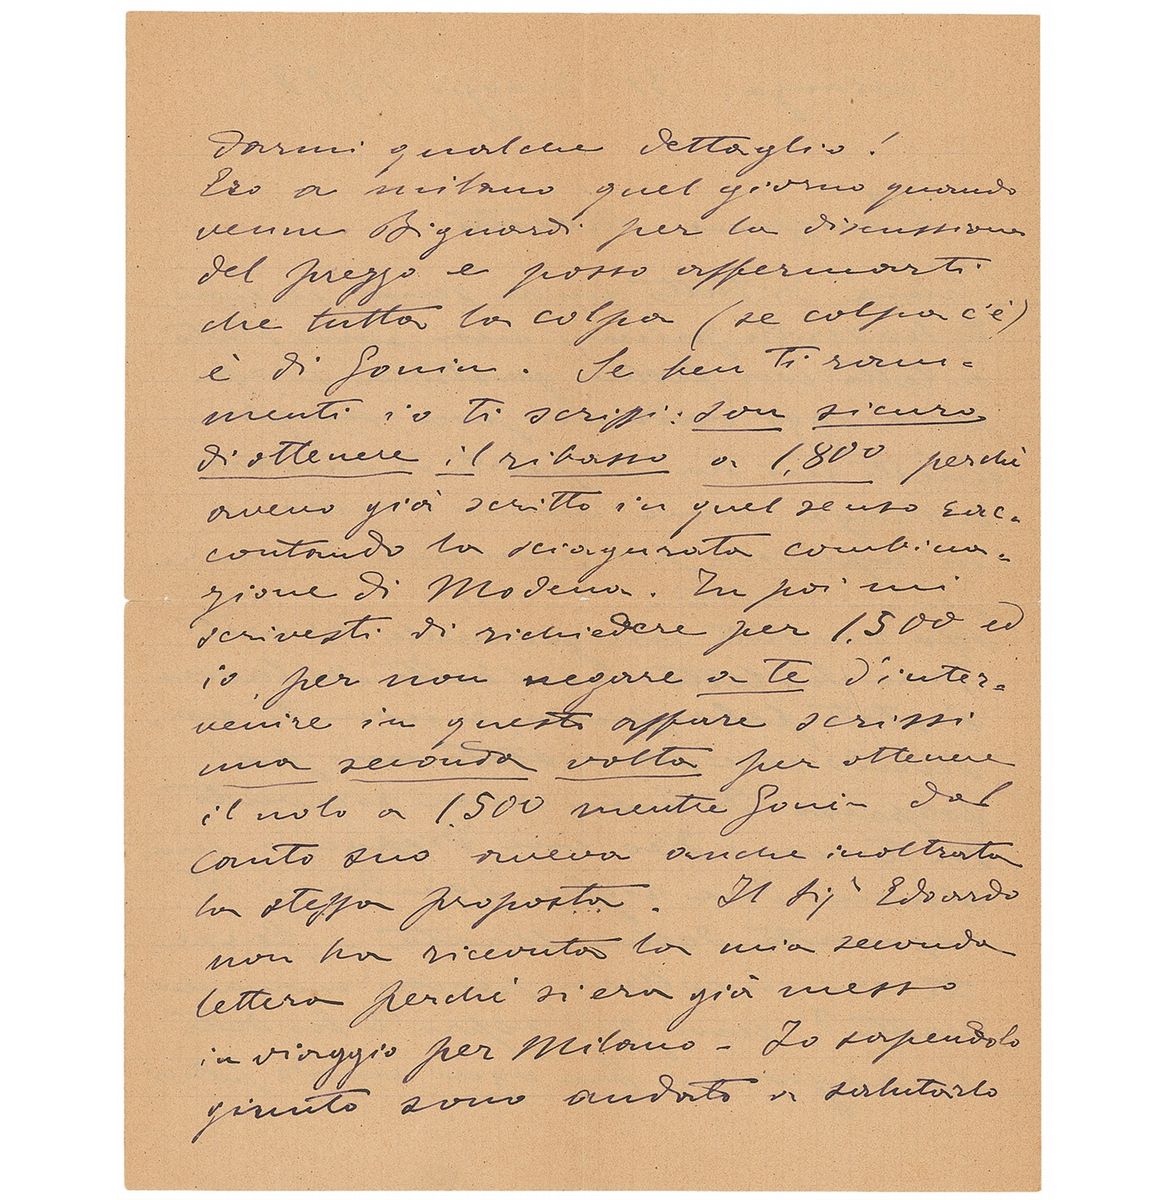 darmi qualche dettaglio!
Ero a Milano quel giorno quando
venne Bignardi per la discussione
del prezzo e posso affermarti
che tutta la colpa (se colpa c'è)
è di Gonin. Se ben ti ram-
menti io ti scrissi: son sicuro
di ottenere il ribasso a 1,800 perchè
avevo già scritto in quel senso rac-
contando la sciagurata combina-
zione di Modena. Tu poi mi
scrivesti di richiedere per 1.500 ed
io, per non negare a te d'inter-
venire in questo affare scrissi
una seconda volta per ottenere
il nolo a 1.500 mentre Gonin dal
canto suo aveva anche inoltrata
la stessa proposta. Il Sigr Edoardo
non ha ricevuto la mia seconda
lettera perchè si era già messo
in viaggio per Milano - Io sapendolo
giunto sono andato a salutarlo